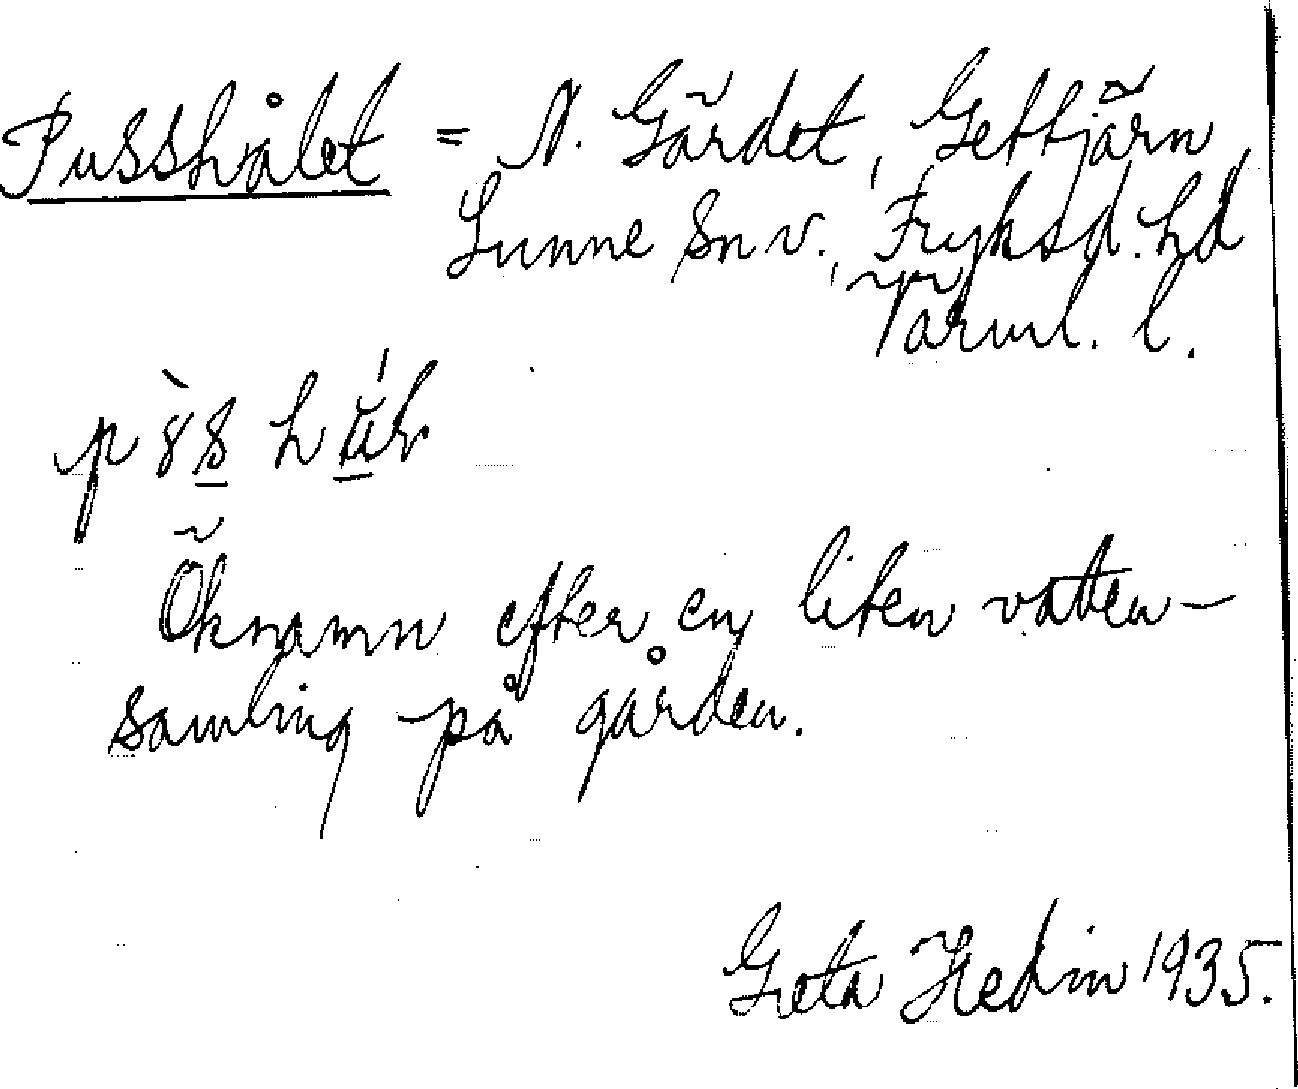 Pusshålet = N. Gärdet, Gettjärn,
Sunne Sn v., Fryksd. hd
Värml. l.
Öknamn efter en liten vatten-
samling på gården.
Greta Hedin 1935.